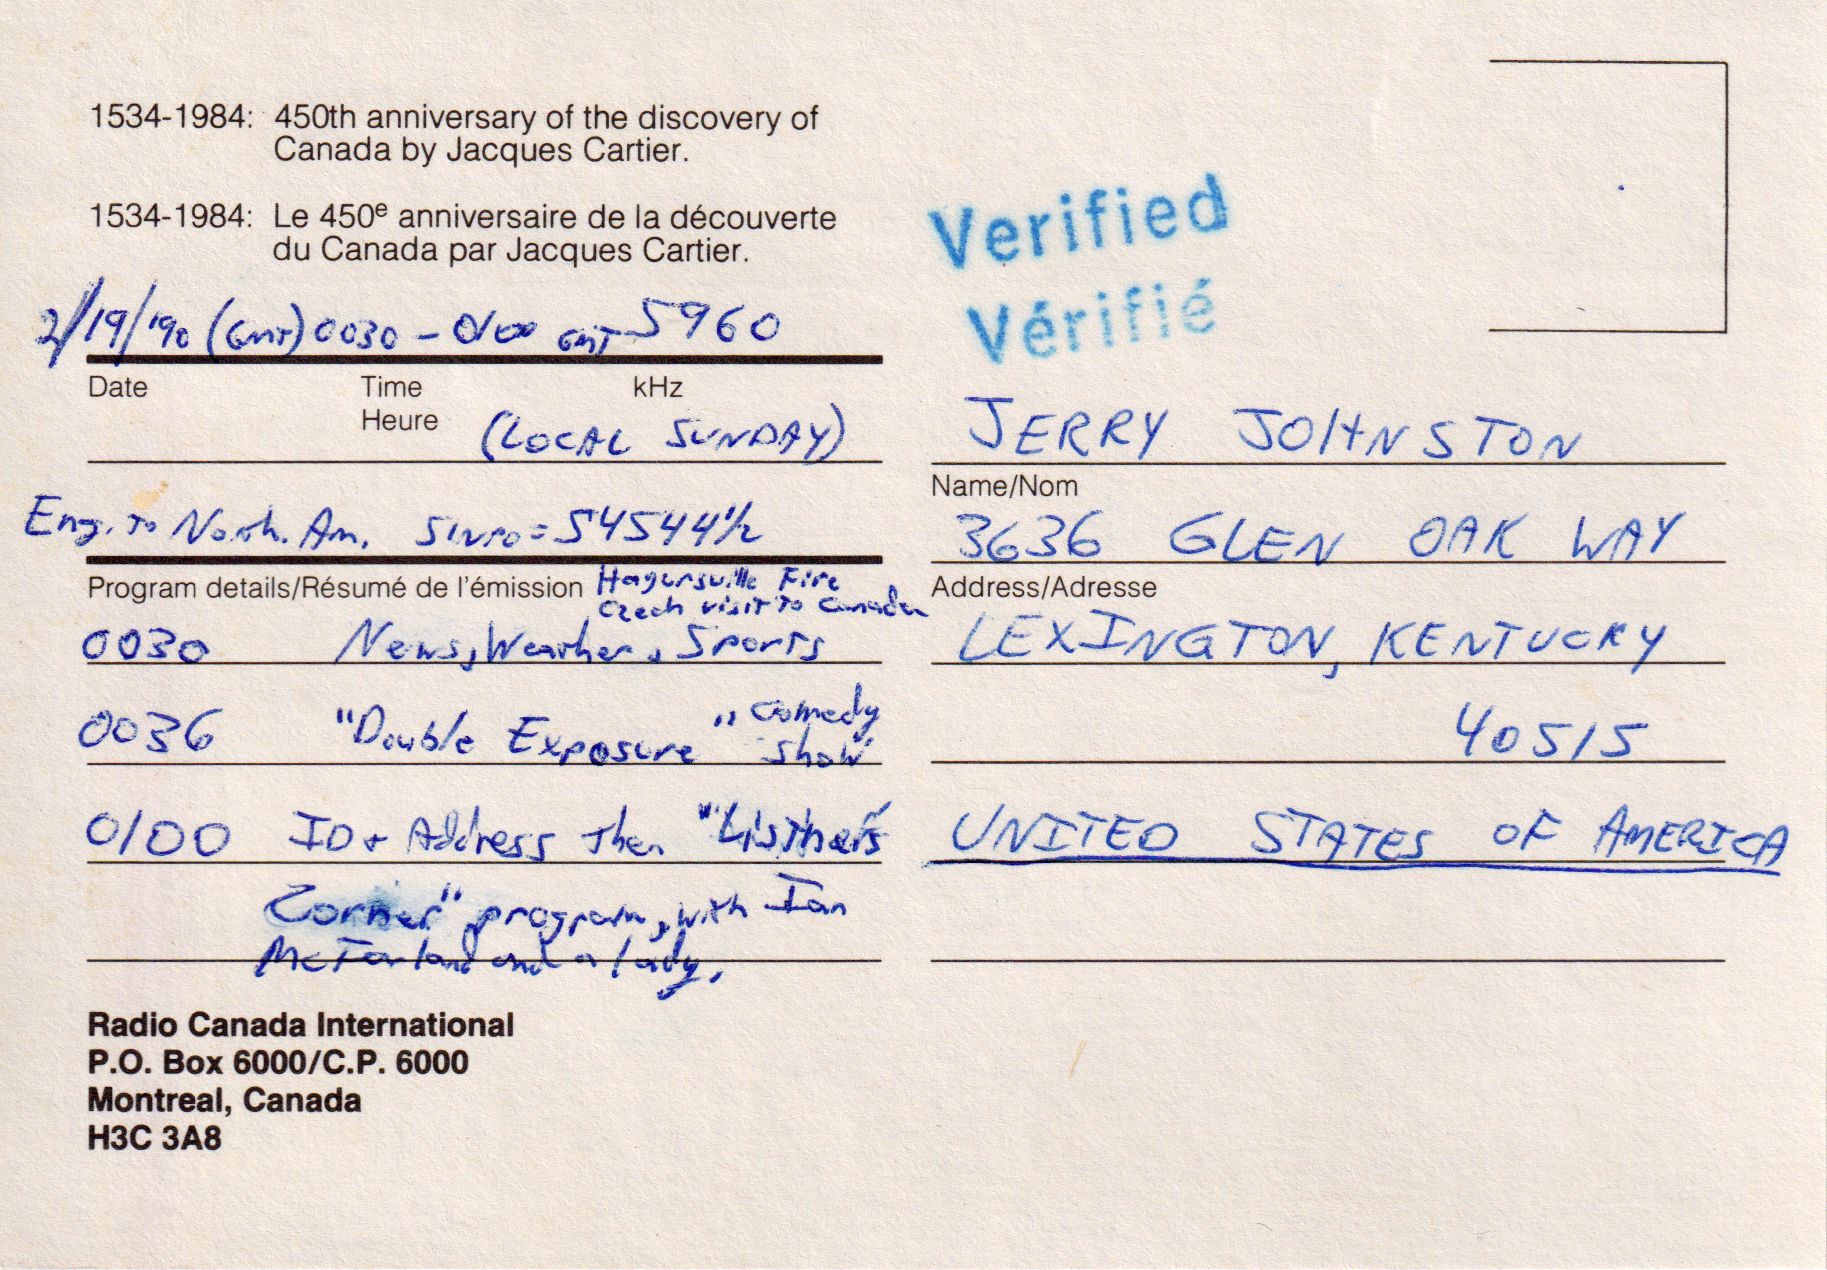 1534-1984: 450th anniversary of the discovery of
Canada by Jacques Cartier.
1534-1984: Le 450e anniversaire de la découverte
du Canada par Jacques Cartier.
2/19/'90 (GMT) 0030 - 0100 GMT 5960
Date Time kHz
Heure (LOCAL SUNDAY)
Eng. to North. Am. SINPO = 54544½
Program details/Résumé de l'émission Hagersville Fire
Czech visit to Canada
0030 News, Weather, Sports
0036 "Double Exposure" comedy
show
0100 ID + Address then "Listner's
Corner" program, with Ian
McFarland and a lady.
Radio Canada International
P.O. Box 6000/C.P. 6000
Montreal, Canada
H3C 3A8
Verified
Vérifié
JERRY JOHNSTON
Name/Nom
3636 GLEN OAK WAY
Address/Adresse
LEXINGTON, KENTUCKY
40515
UNITED STATES OF AMERICA